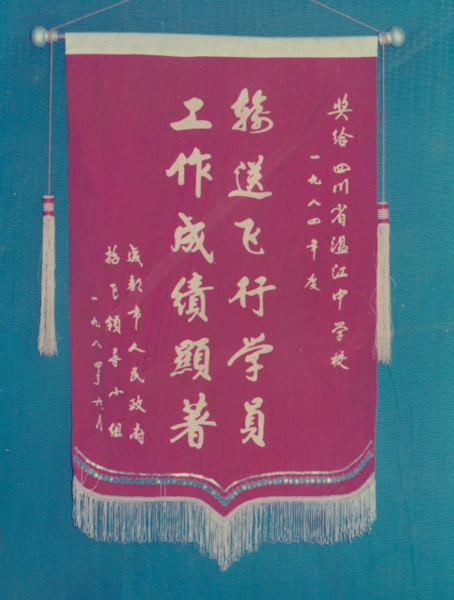 奖给四川省温江中学校
一九八四年度
输送飞行学员
工作成绩顯著
成都市人民政府
招飞领导小组
一九八四年六月